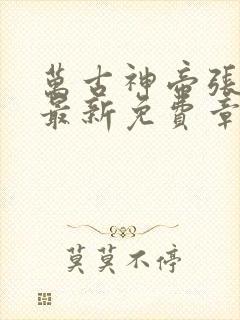 萬古神帝張
最新免費章
莫莫不停